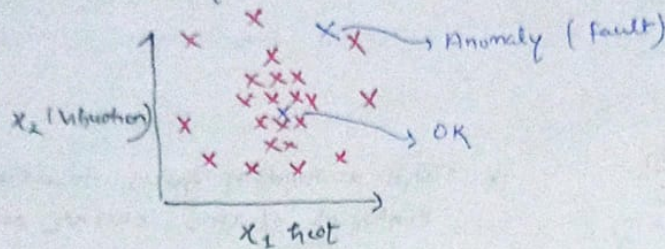 Anomaly (fault)
x₂ (Vibration)
OK
x₁ heat